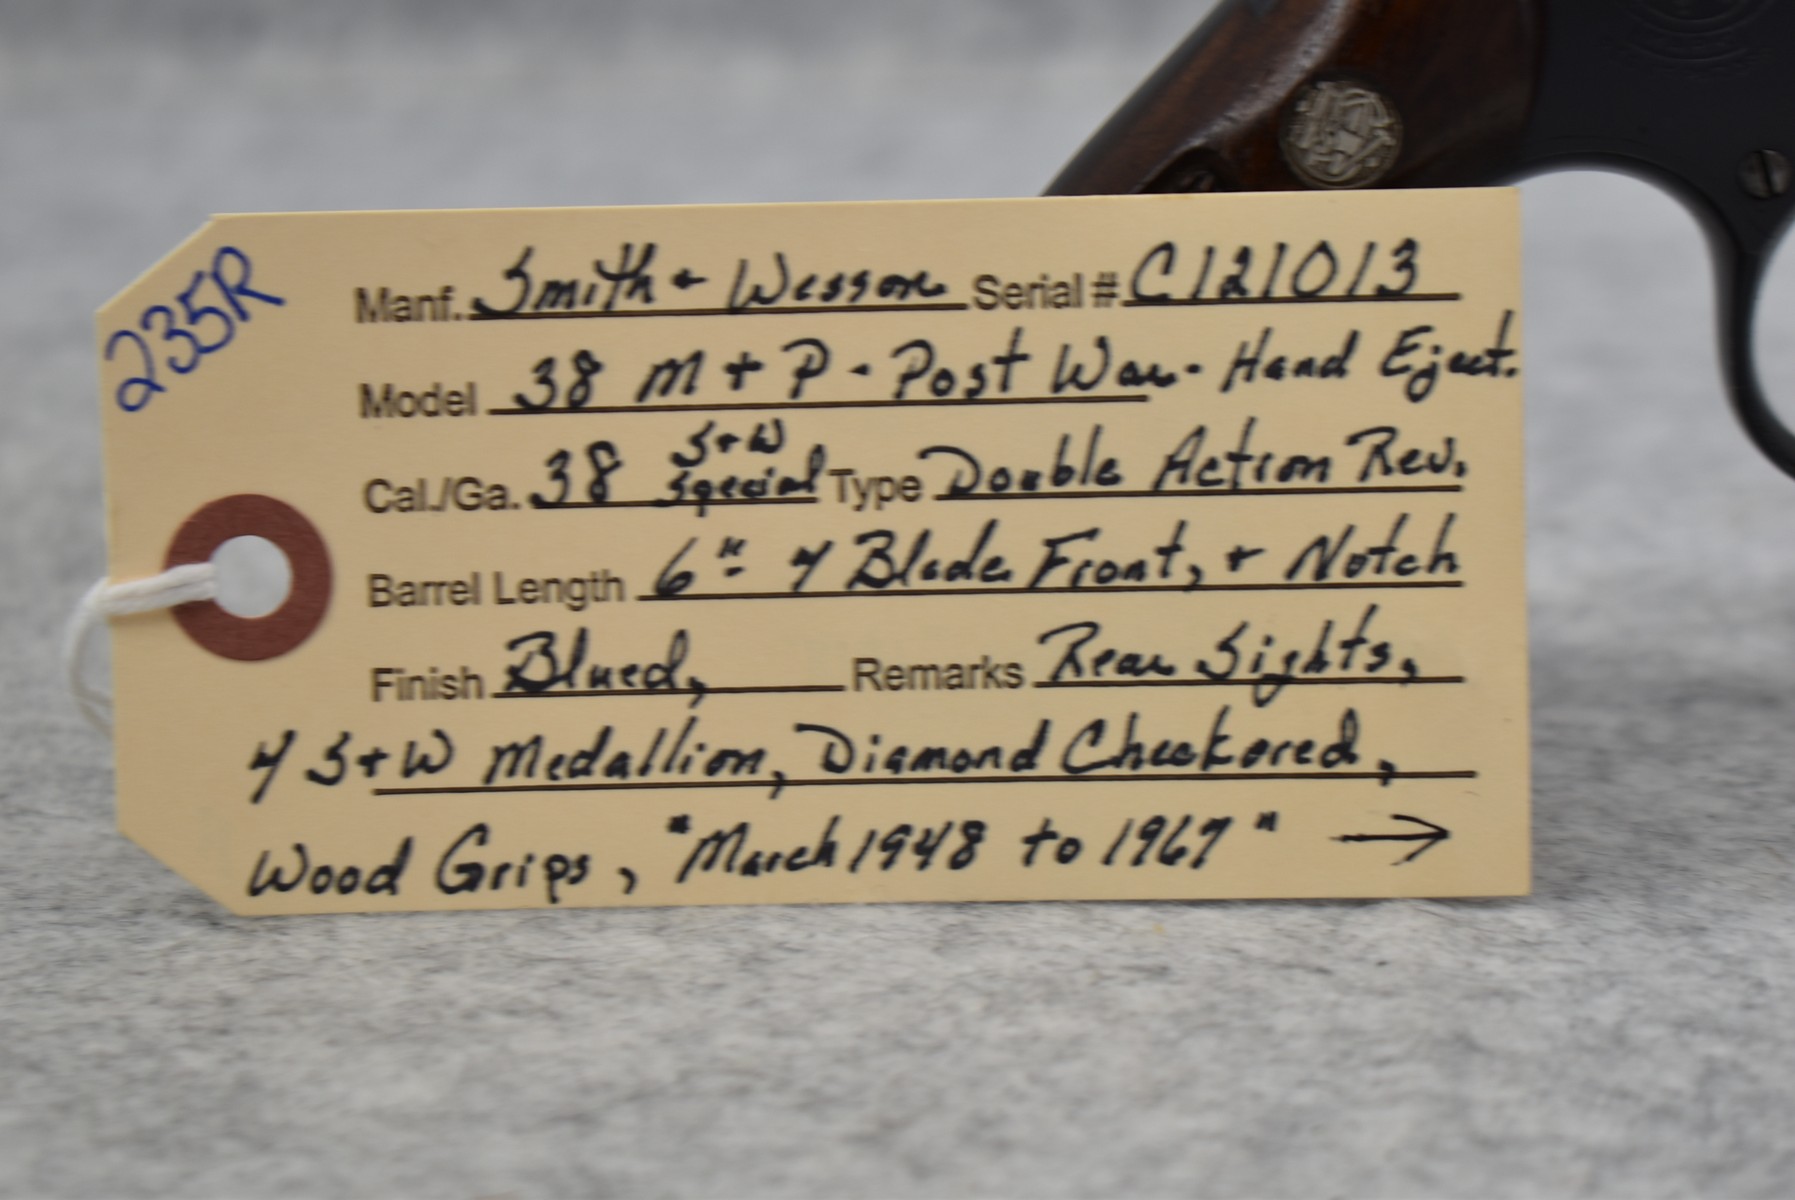 235R
Manf. Smith + Wesson Serial # C121013
Model 38 M + P - Post War - Hand Eject.
Cal./Ga. 38 S+W Special Type Double Action Rev.
Barrel Length 6" y Blade Front, + Notch
Finish Blued, Remarks Rear Sights,
y S+W Medallion, Diamond Checkored,
Wood Grips, "March 1948 to 1967" →